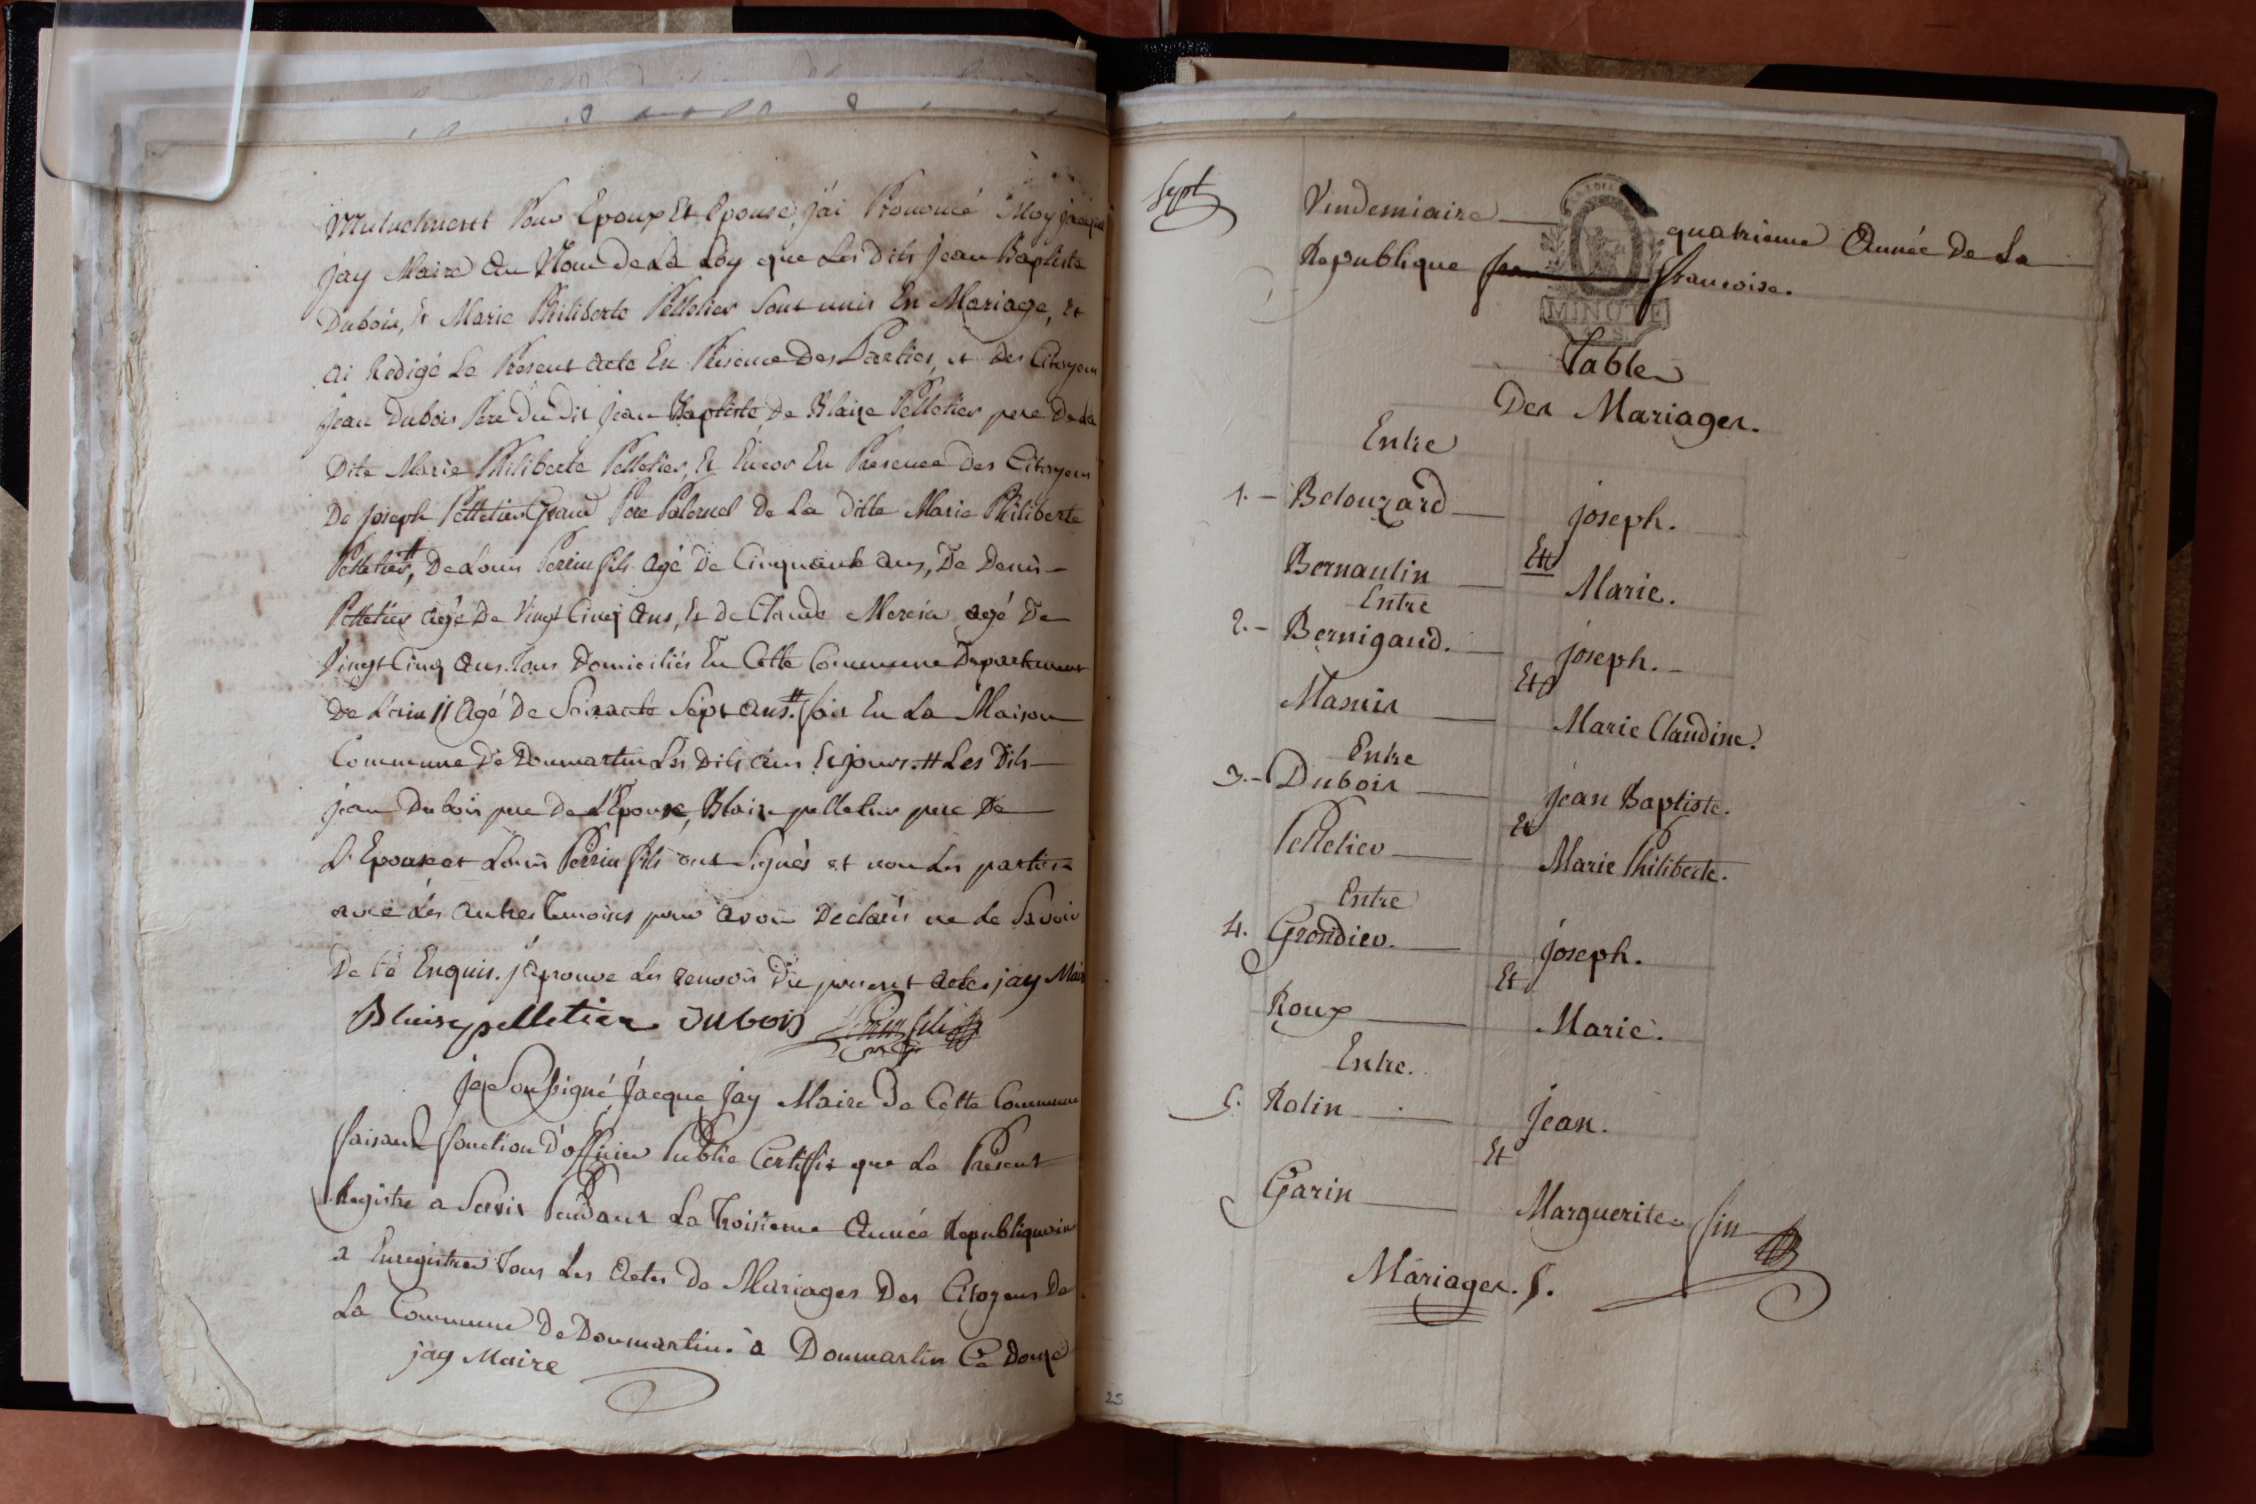 Mutuelment Pour Epoux Et Epouse, j'ai Prononcé Moy jacque
jay Maire Au Nom De La Loy que Les Dits jean Baptiste
Dubois, Et Marie Philiberte Pelletier Sont unis En Mariage, Et
ai Redigé Le Present acte En Presence Des Parties, et des Citoyens
jean Dubois Pere du dit jean Baptiste, De Blaize Pelletier pere De La
Dite Marie Philiberte Pelletier, Et Encor En Presence des Citoyens
De joseph Pelletier Grand Pere Paternel De La ditte Marie Philiberte
Pelletier, De Louis Perrin fils agé De Cinquante ans, De Denis
Pelletier agé De Vingt Cinq ans, Et de Claude agé De
Vingt Cinq ans. Tous Domiciliés En Cette Commune Departement
De L'ain // Agé De Soixante Sept ans.# fair En La Maison
Commune De Donmartin Les Dits ans Et jours.# Les Dits
jean Dubois pere de L'Epoux, Blaize pelletier pere De
L'Epouse et Louis Perrin fils ont Signés et non Les parties
avec Les autres Temoins pour avoir Declarés ne Le Savoir
De ce Enquis. j'aprouve Les renvois Du present acte. jay Maire
Blaise pelletier Dubois Perrin fils
je Soussigné Jacque Jay Maire De Cette Commune
faisant fonction D'officier Public Certiffie que Le Present
Registre a Servir Pendant La Troisieme Année Republiquaine
a Enregistrer Tous Les Actes De Mariages Des Citoyens De
La Commune De Donmartin. à Donmartin Ce Douze
jay Maire
Sept
Vindemiaire quatrieme Année De La
Republique francoise.
MINUTE
Table
Des Mariages.
Entre
1. - Belouzard joseph.
Et
Bernaulin Marie.
Entre
2. - Bernigaud. joseph.
Et
Masuir Marie Claudine.
Entre
3. - Dubois jean Baptiste.
Et
Pelletier Marie Philiberte.
Entre
4. Grondier. joseph.
Et
Roux Marie.
Entre.
5. Rolin Jean.
Et
Garin Marguerite fin
Mariages. 5.
25